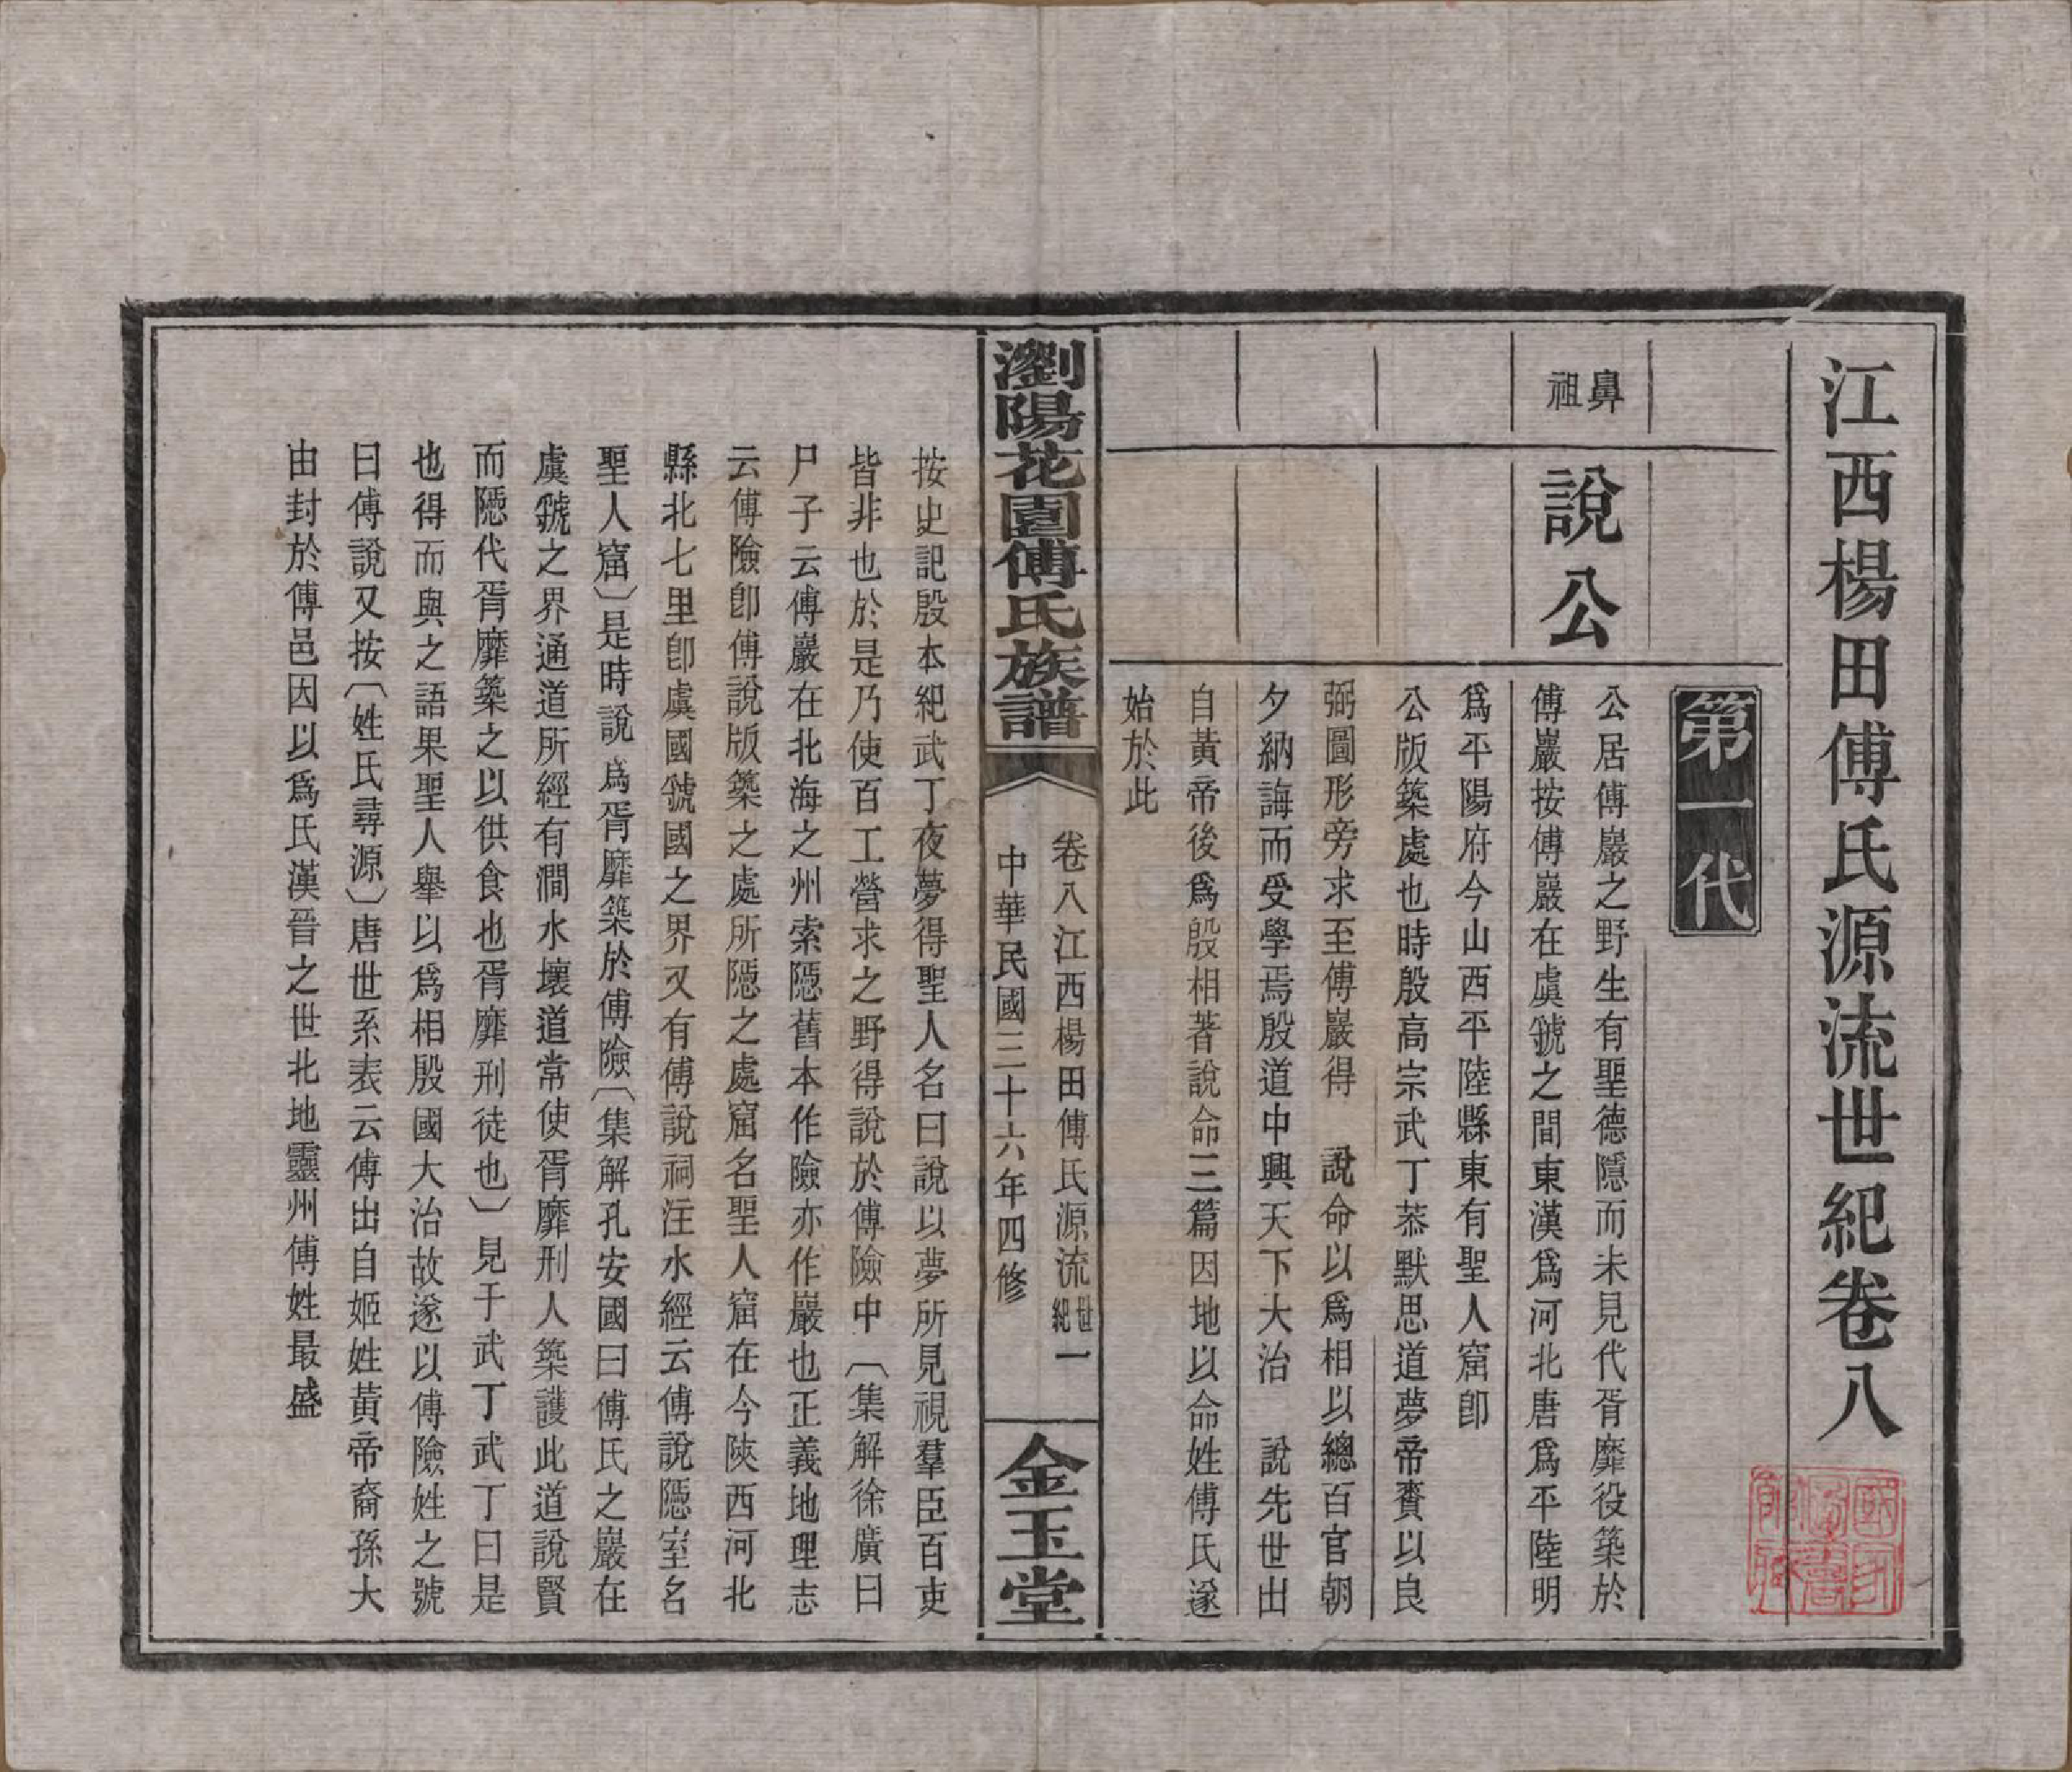 江西楊田傅氏源流世紀卷八
第一代
鼻祖
說公
公居傅巖之野生有聖德隱而未見代胥靡役築於
傅巖按傅巖在虞虢之間東漢爲河北唐爲平陸明
爲平陽府今山西平陸縣東有聖人窟卽
公版築處也時殷高宗武丁恭默思道夢帝賚以良
弼圖形旁求至傅巖得　說命以爲相以總百官朝
夕納誨而受學焉殷道中興天下大治　說先世出
自黃帝後爲殷相著說命三篇因地以命姓傅氏遂
始於此
瀏陽花園傅氏族譜
卷八江西楊田傅氏源流世紀一
中華民國三十六年四修
金玉堂
按史記殷本紀武丁夜夢得聖人名曰說以夢所見視羣臣百吏
皆非也於是乃使百工營求之野得說於傅險中〔集解徐廣曰
尸子云傅巖在北海之州索隱舊本作險亦作巖也正義地理志
云傅險卽傅說版築之處所隱之處窟名聖人窟在今陝西河北
縣北七里卽虞國虢國之界又有傅說祠注水經云傅說隱室名
聖人窟〕是時說爲胥靡築於傅險〔集解孔安國曰傅氏之巖在
虞虢之界通道所經有澗水壞道常使胥靡刑人築護此道說賢
而隱代胥靡築之以供食也胥靡刑徒也〕見于武丁武丁曰是
也得而與之語果聖人舉以爲相殷國大治故遂以傅險姓之號
曰傅說又按〔姓氏尋源〕唐世系表云傅出自姬姓黃帝裔孫大
由封於傅邑因以爲氏漢晉之世北地靈州傅姓最盛